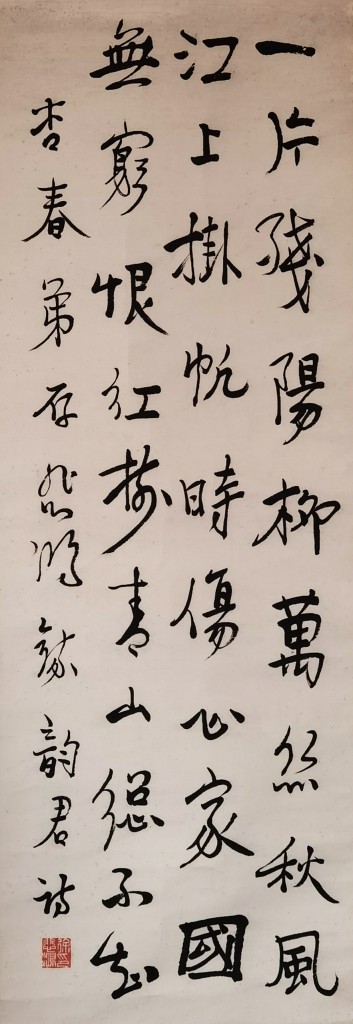 一片殘陽柳萬絲秋風
江上掛帆時傷心家國
無窮恨紅樹青山總不知
杏春弟存 悲鴻錄韵君詩